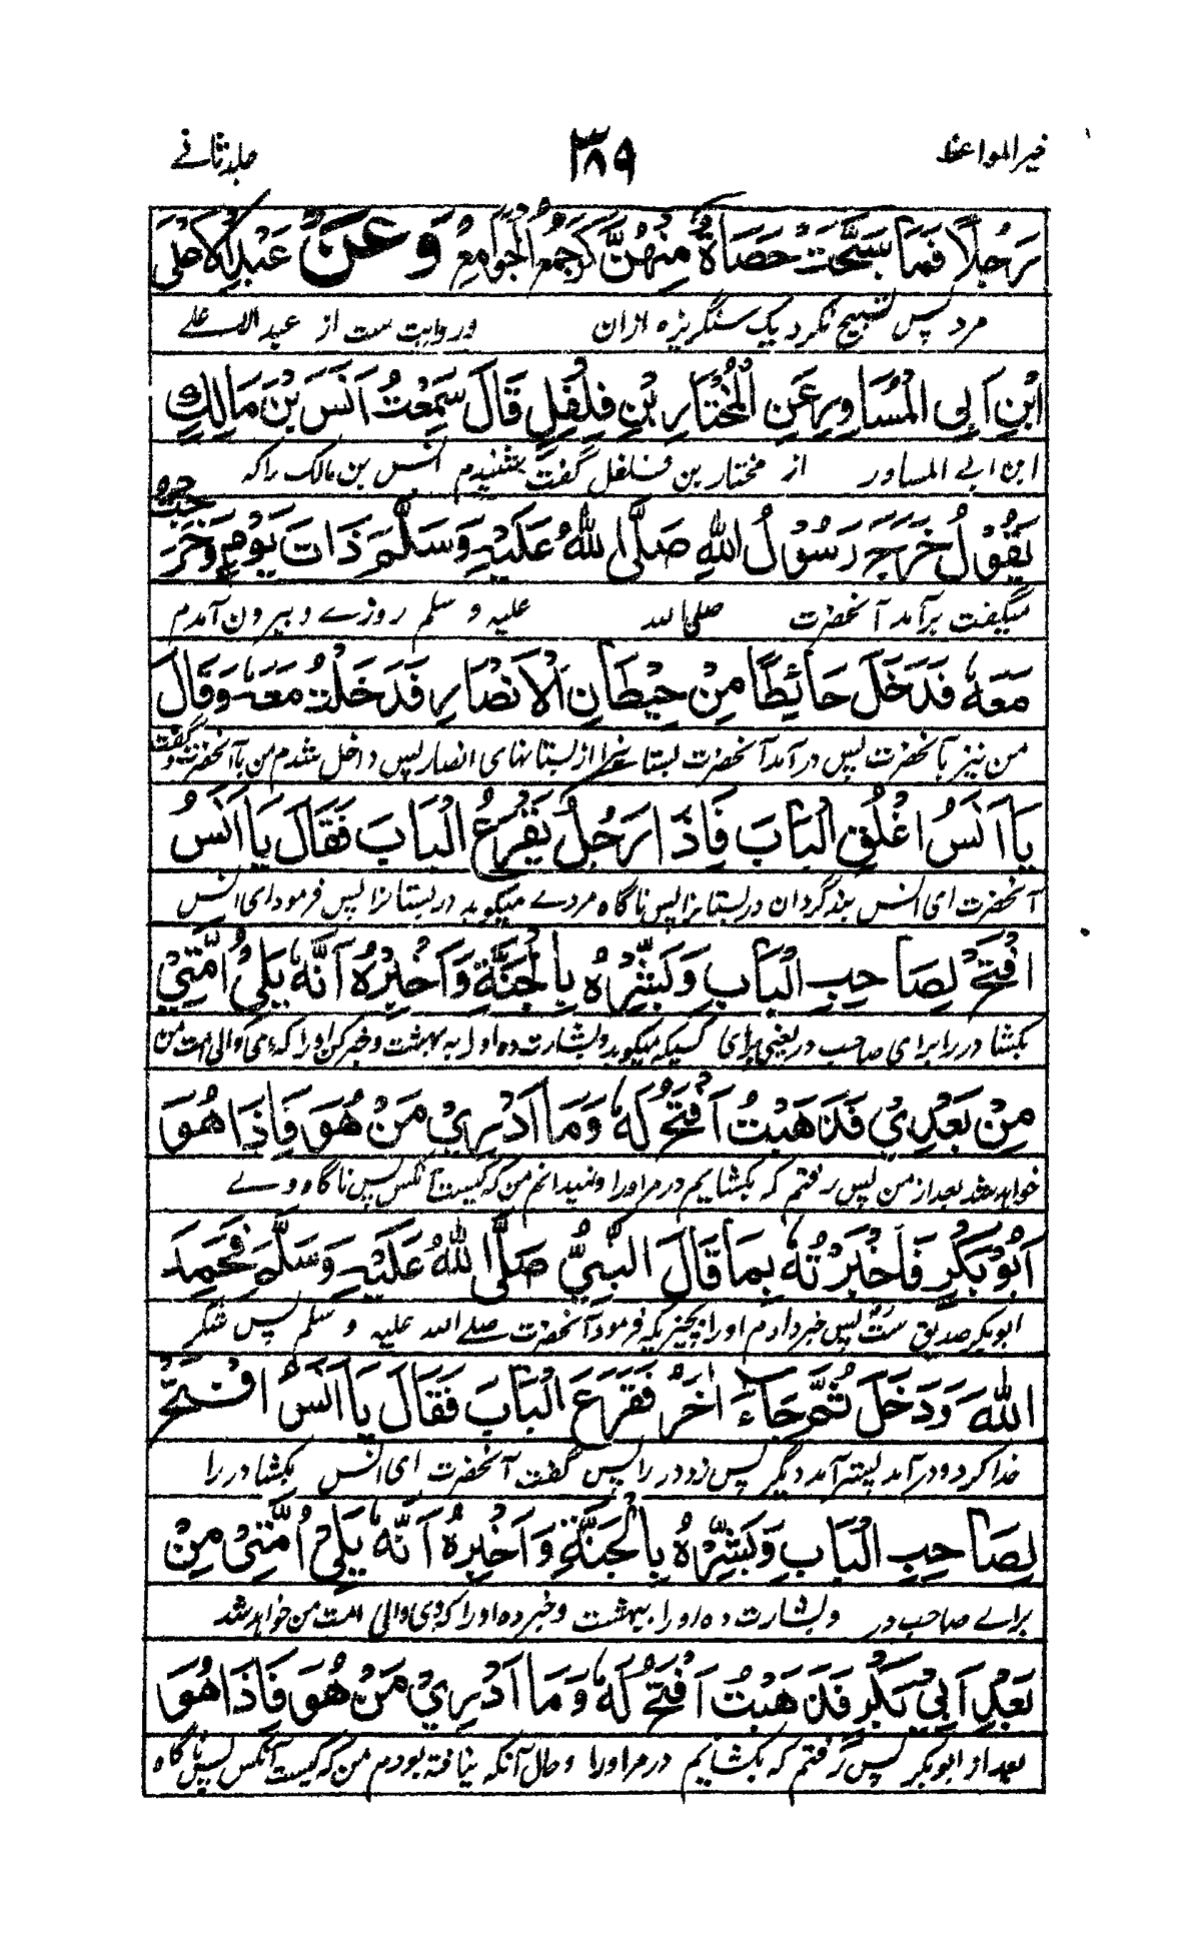 خیرالمواعظ ۳۸۹ جلد ثانے
رَجُلًا فَمَا سَبَّحَتْ حَصَاةٌ مِنْهُنَّ كَرْجَمْعُ الْجَوَامِعِ وَعَنْ عَبْدِ الْاَعْلَى
مرد پس تسبیح نکرد یک سنگریزہ ازان وروایت ست از عبد الاعلے
ابْنِ اَبِى الْمُسَاوِرِ عَنِ الْمُخْتَارِ بْنِ فِلْفِلٍ قَالَ سَمِعْتُ اَنَسَ بْنَ مَالِكٍ
ابن ابے المساور از مختار بن فلفل گفت بشنیدم انس بن مالک را کہ
يَقُوْلُ خَرَجَ رَسُوْلُ اللّٰهِ صَلَّى اللّٰهُ عَلَيْهِ وَسَلَّمَ ذَاتَ يَوْمٍ وَخَرَجْتُ
میگفت برآمد آنحضرت صلی اللہ علیہ و سلم روزے و بیرون آمدم
مَعَهٗ فَدَخَلَ حَائِطًا مِنْ حِيْطَانِ الْاَنْصَارِ فَدَخَلْتُ مَعَهٗ وَقَالَ
من نیز با آنحضرت پس درآمد آنحضرت بستانے را از بستانہای انصار پس داخل شدم من با آنحضرت و گفت
يَا اَنَسُ اغْلِقِ الْبَابَ فَاِذَا رَجُلٌ يَقْرَعُ الْبَابَ فَقَالَ يَا اَنَسُ
آنحضرت ای انس بند گردان در بستانرا پس ناگاہ مردے میکوبد در بستانرا پس فرمود ای انس
افْتَحْ لِصَاحِبِ الْبَابِ وَبَشِّرْهُ بِالْجَنَّةِ وَاَخْبِرْهُ اَنَّهٗ يَلِيْ اُمَّتِيْ
بکشا در را برای صاحب در یعنی برای کسیکہ میکوبد و بشارت دہ اورا بہ بہشت و خبر کن اورا کہ وی والی امت من
مِنْ بَعْدِيْ فَذَهَبْتُ اَفْتَحُ لَهٗ وَمَا اَدْرِيْ مَنْ هُوَ فَاِذَا هُوَ
خواہد شد بعد از من پس رفتم کہ بکشایم در مر اورا و نمیدانم من کہ کیست آنکس پس ناگاہ وے
اَبُوْ بَكْرٍ فَاَخْبَرْتُهٗ بِمَا قَالَ النَّبِيُّ صَلَّى اللّٰهُ عَلَيْهِ وَسَلَّمَ فَحَمِدَ
ابو بکر صدیق ست پس خبر دادم اورا بچیزیکہ فرمود آنحضرت صلے اللہ علیہ و سلم پس شکر
اللّٰهَ وَدَخَلَ ثُمَّ جَاءَ اٰخَرُ فَقَرَعَ الْبَابَ فَقَالَ يَا اَنَسُ افْتَحْ
خدا کرد و درآمد پستر آمد دیگر پس زد در را پس گفت آنحضرت ای انس بکشا در را
لِصَاحِبِ الْبَابِ وَبَشِّرْهُ بِالْجَنَّةِ وَاَخْبِرْهُ اَنَّهٗ يَلِيْ اُمَّتِىْ مِنْ
براے صاحب در و بشارت دہ اورا بہ بہشت و خبر دہ اورا کہ وی والی امت من خواہد شد
بَعْدِ اَبِيْ بَكْرٍ فَذَهَبْتُ اَفْتَحُ لَهٗ وَمَا اَدْرِيْ مَنْ هُوَ فَاِذَا هُوَ
بعد از ابوبکر پس رفتم کہ بکشایم در مر اورا و حال آنکہ نیافتہ بودم من کہ کیست آنکس پس ناگاہ